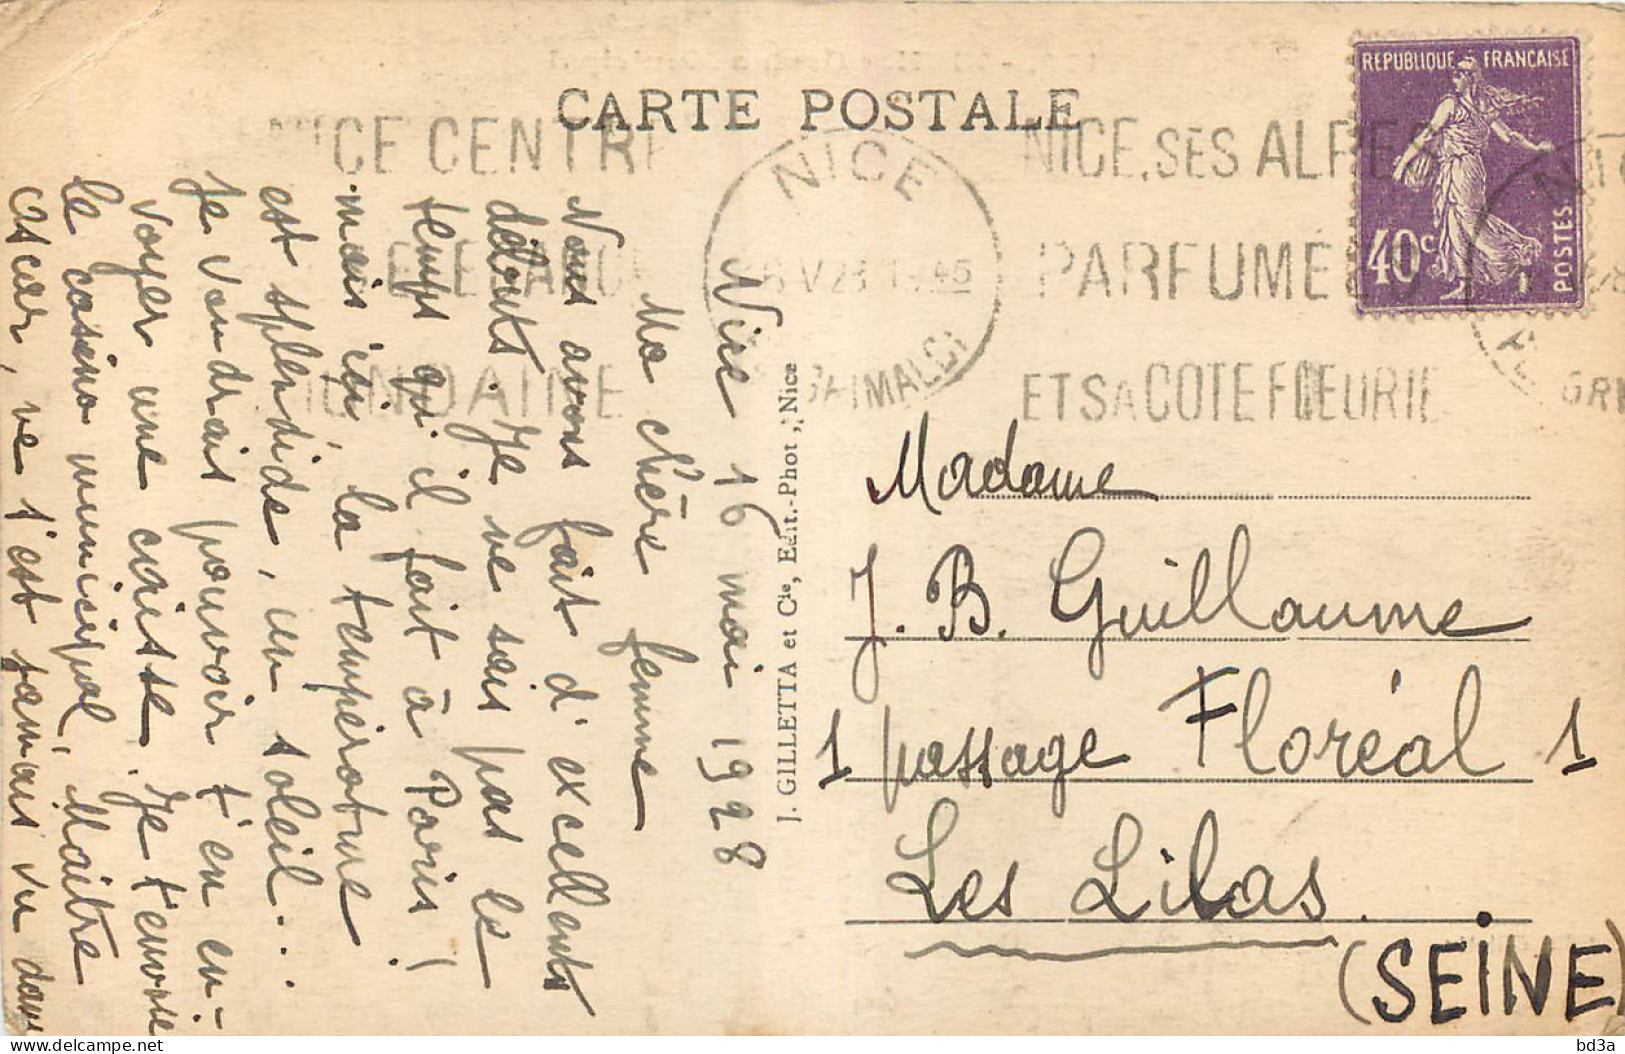 CARTE POSTALE
REPUBLIQUE FRANÇAISE
40c
POSTES
NICE CENTRE
ELEGANCE
MONDAINE
NICE
V 28 19 45
GRIMALDI
NICE, SES ALPES
PARFUMÉES
ET SA COTE FLEURIE
J. GILLETTA et Cie, Edit.-Phot., Nice
Nice 16 mai 1928
Ma chère femme
Nous avons fait d'excellents
débuts. Je ne sais pas le
temps qu'il fait à Paris !
mais ici, la température
est splendide, un soleil...
Je voudrais pouvoir t'en en-
voyer une caisse. Je t'envoie
le casino municipal, Maître
Oscar, ne s'est jamais vu dans
Madame
J. B. Guillaume
1 passage Floréal 1
Les Lilas
(SEINE)
bd3a